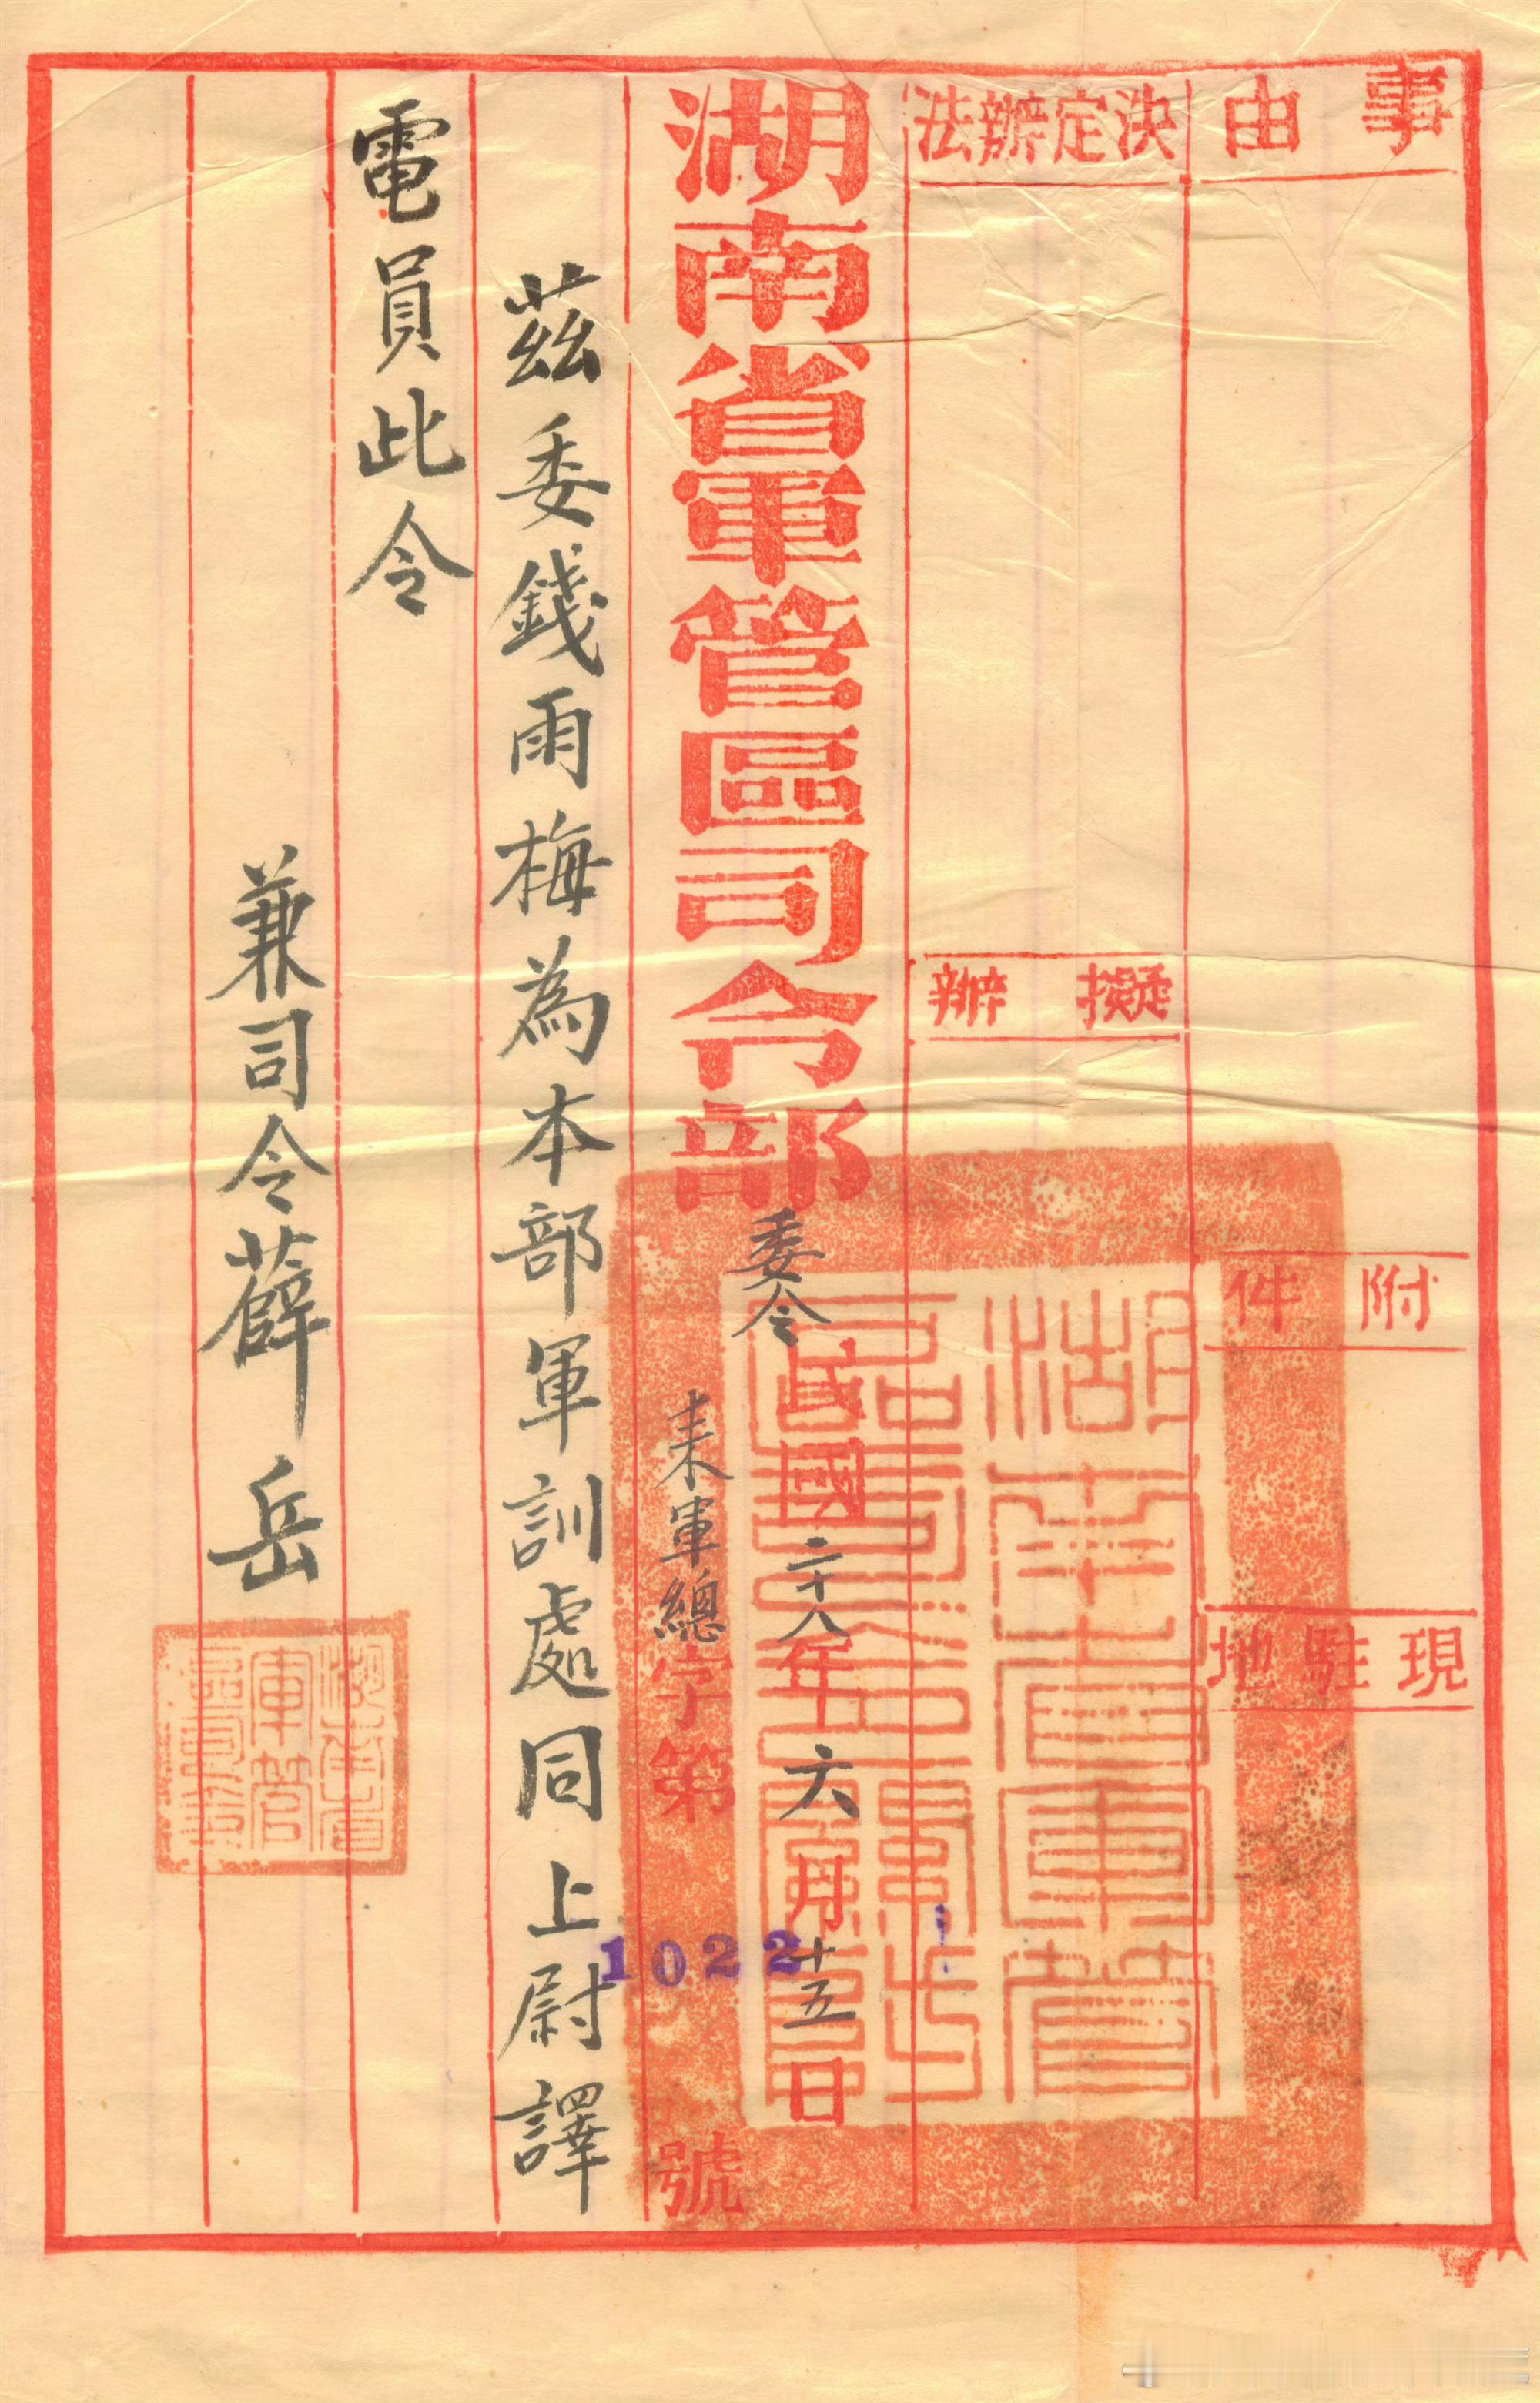 事由
附件
現駐地
決定辦法
擬辦
湖南省軍管區司令部
委令
民國二十八年六月十五日
耒軍總字第1022號
茲委錢雨梅為本部軍訓處同上尉譯
電員此令
兼司令薛岳
湖南省軍管區司令部